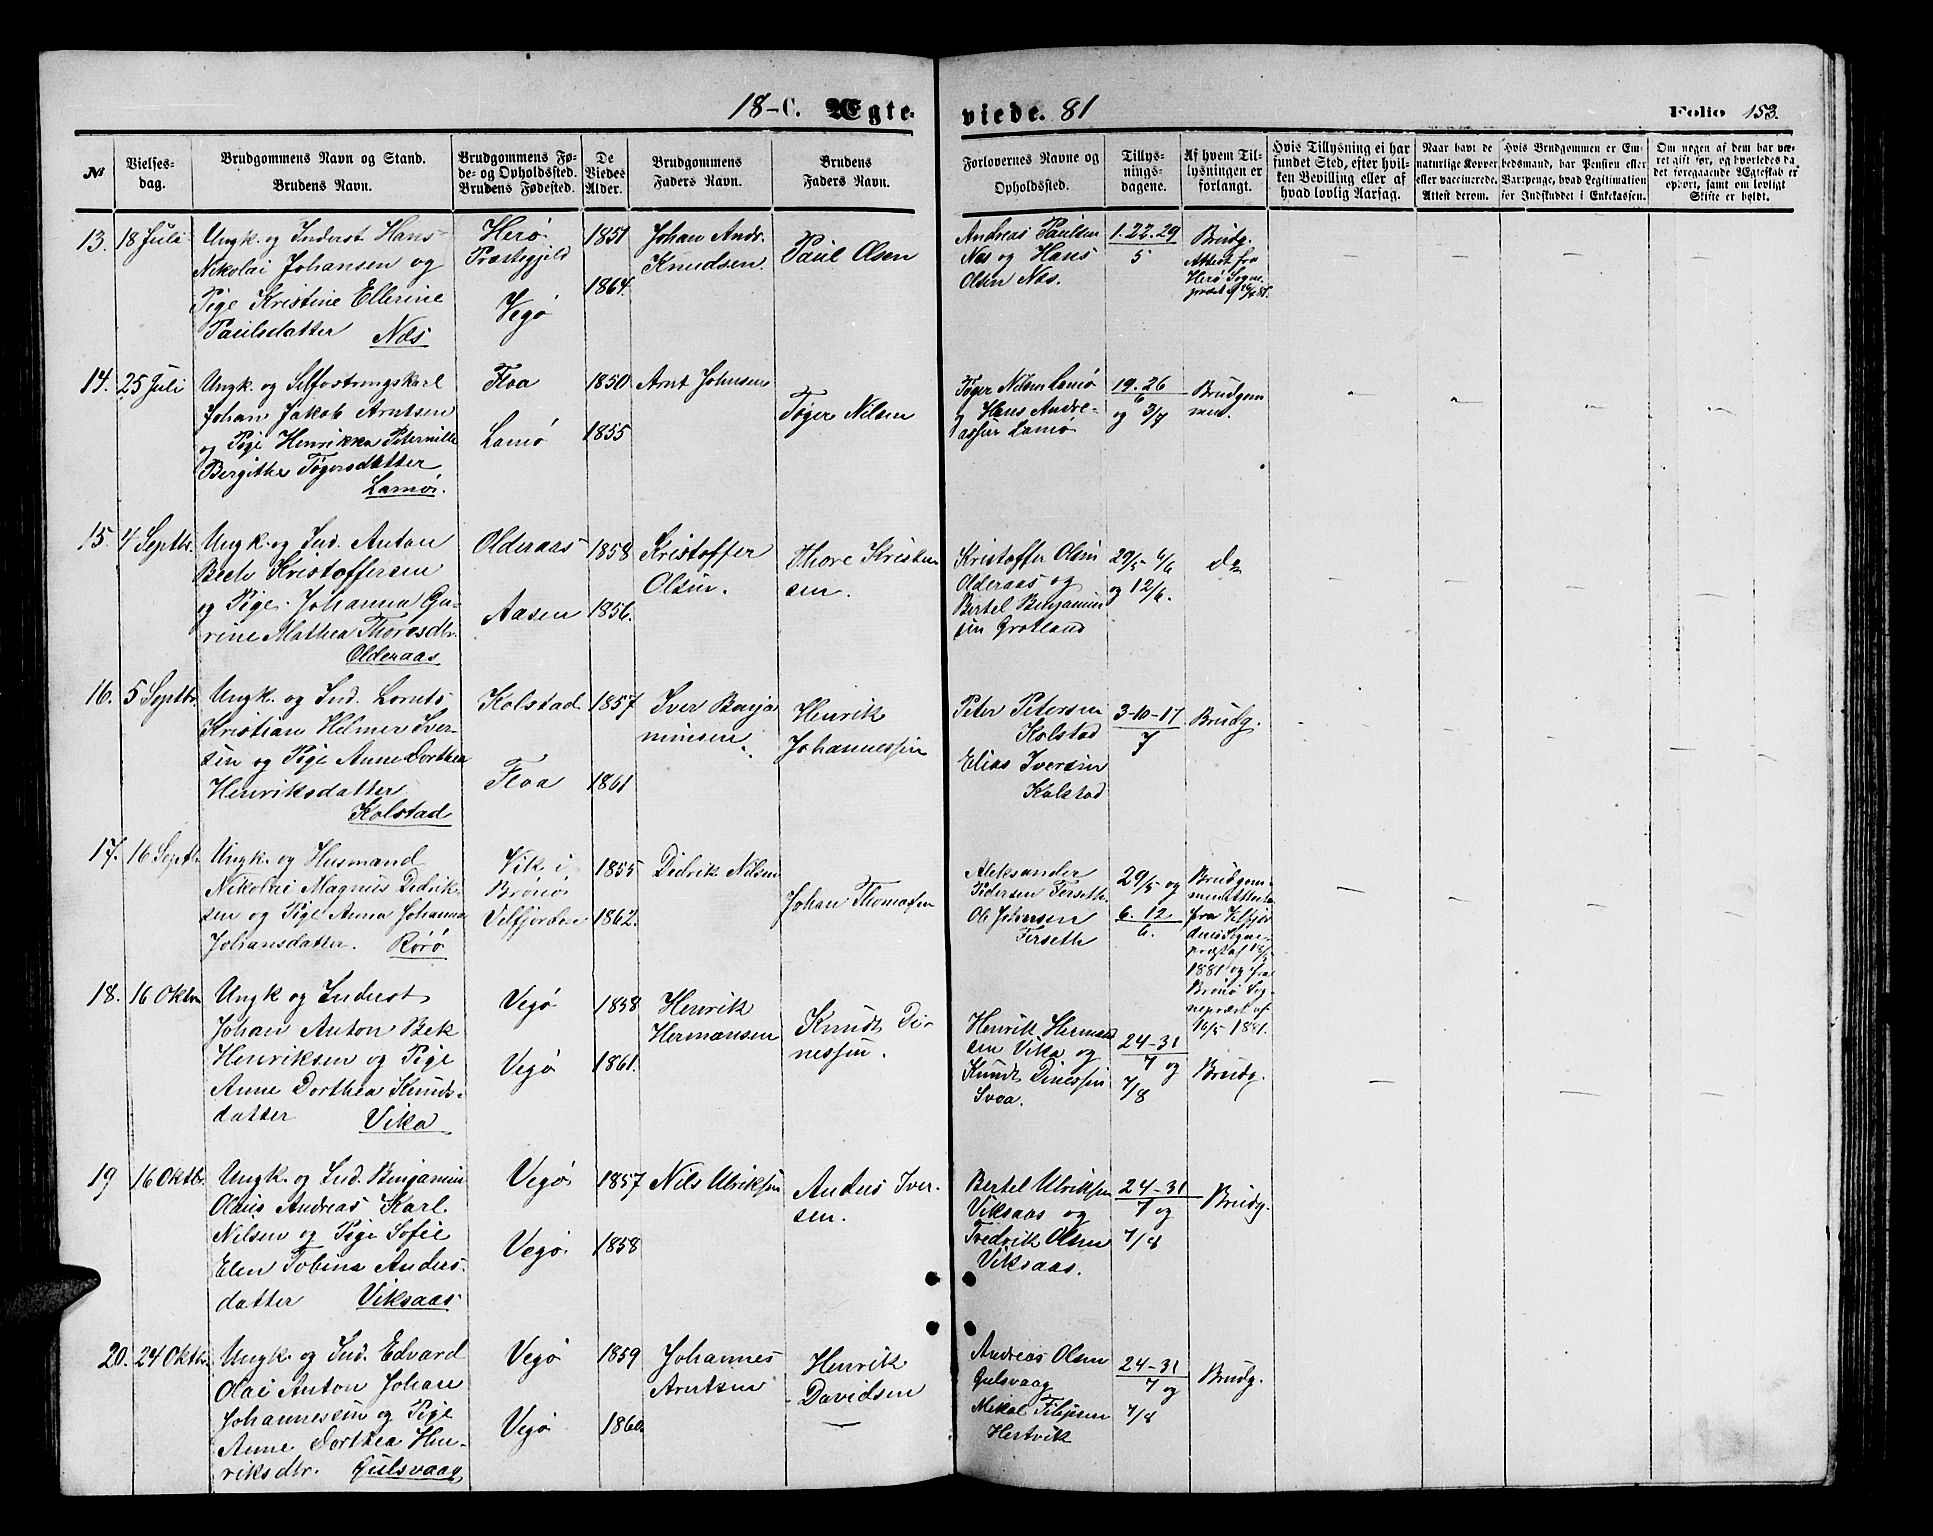 18-C. Ægteviede. 81
Folio 153.
№
Vielsesdag.
Brudgommens Navn og Stand.
Brudens Navn.
Brudgommens Føde- og Opholdssted.
Brudens Fødested.
De Viedes Alder.
Brudgommens Faders Navn.
Brudens Faders Navn.
Forlovernes Navne og Opholdssted.
Tillysningsdagene.
Af hvem Tillysningen er forlangt.
Hvis Tillysning ei har fundet Sted, efter hvilken Bevilling eller af hvad lovlig Aarsag.
Naar havt de naturlige Kopper eller vaccinerede. Attest derom.
Hvis Brudgommen er Embedsmand, har Pension eller Vartpenge, hvad Legitimation for Indskuddet i Enkekassen.
Om nogen af dem har været gift før, og hvorledes da det foregaaende Ægteskab er ophørt, samt om lovligt Skifte er holdt.
13. 18 Juli
Ungk. og Inderst Hans
Nikolai Johansen og
Pige Kristine Ellerine
Paulsdatter Næs
Herø
Præstegjeld
Vegø
1851
1864.
Johan Andr.
Knudsen.
Paul Olsen
Andreas Paulsen
Næs og Hans
Olsen Næs.
1. 22. 29
5
Brudg.
Attest fra
Herø Sogne-
14. 25 Juli
Ungk. og Selfostringskarl
Johan Jakob Arntsen
og Pige Henrikka Peternille
Bergitha Tøgersdatter
Lamø.
Floa
Lamø
1850
1855
Arnt Johnsen
Tøger Nilsen
Tøger Nilsen Lamø
og Hans Andre-
assen Lamø
19. 26
6
og 3/7
Brudgom
men.
15. 4 Septbr.
Ungk. og Ind. Anton
Bech Kristoffersen
og Pige Johanna Gu-
rine Mathea Thoresdtr.
Olderaas
Olderaas
Aasen
1858
1856.
Kristoffer
Olsen.
Thore Kristen
sen.
Kristoffer Olsen
Olderaas og
Bertel Benjamin
sen Grotland
29/5 6/6
og 12/6.
Do
16. 5 Septbr.
Ungk. og Ind. Lornts
Kristian Helmer Iver-
sen og Pige Anne Dorthea
Henriksdatter
Kolstad
Kolstad
Floa
1857
1861
Iver Benja
minsen.
Henrik
Johannessen
Peter Petersen
Kolstad
Elias Iversen
Kolstad
3-10-17
7
Brudg.
17. 16 Septbr.
Ungk. og Husmand
Nikolai Magnus Didrik-
sen og Pige Anna Johanna
Johansdatter. Rørø
Vik i
Brønø
Velfjorden
1855
1862.
Didrik Nilsen
Johan Thomassen
Aleksander
Pedersen Forseth
Ole Johnsen
Forseth
29/5 og
6. 12.
6.
Brudgom-
men Attester
fra Velfjor
dens Sogne-
præst af
1881 og fra
Brønø Sog-
nepræst af
16/5 1881.
18. 16 Oktbr
Ungk og Inderst
Johan Anton Bek
Henriksen og Pige
Anne Dorthea Knuds-
datter Vika
Vegø
Vegø
1858
1861.
Henrik
Hermansen
Knudt Di-
nessen.
Henrik Herman
sen Vika og
Knudt Dinessen
Svaa.
24-31
7 og
7/8
Brudg.
19 16 Oktbr.
Ungk. og Ind. Benjamin
Olaus Andreas Karl
Nilsen og Pige Sofie
Elen Tobina Anders-
datter Viksaas
Vegø
Vegø.
1857
1858
Nils Ulriksen
Anders Iver-
sen.
Bertel Ulriksen
Viksaas og
Fredrik Olsen
Viksaas.
24-31
7 og
7/8
Brudg.
20. 24 Oktbr.
Ungk. og Ind. Edvard
Olai Anton Johan
Johannessen og Pige
Anne Dorthea Hen-
riksdtr. Gulsvaag
Vegø
Vegø
1859
1860.
Johannes
Arntsen
Henrik
Davidsen
Andreas Olsen
Gulsvaag
Mikal Filipsen
Hertvik
24-31
7 og
7/8
Brudg.